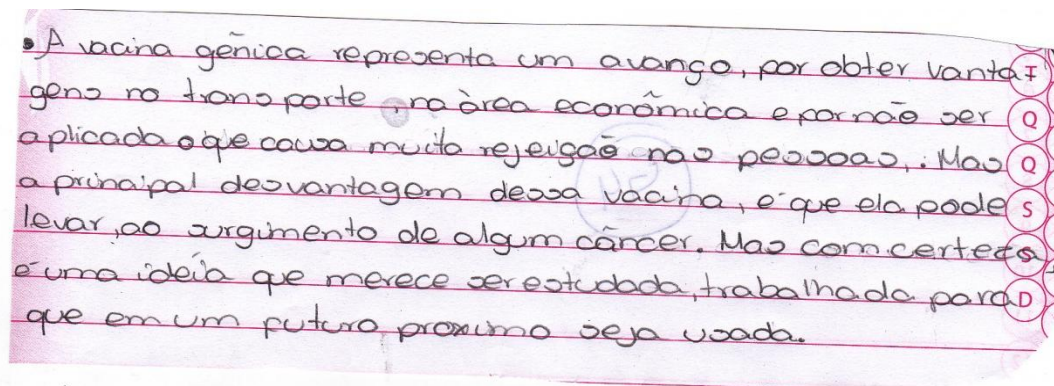 • A vacina gênica representa um avanço, por obter vanta
gens no transporte, na àrea econômica e por não ser
aplicada o que causa muita rejeição nas pessoas,. Mas
a principal desvantagem dessa vacina, é que ela pode
levar, ao surgimento de algum câncer. Mas com certeza
é uma ideia que merece ser estudada, trabalhada para
que em um futuro proximo seja usada.
T
Q
Q
S
S
D